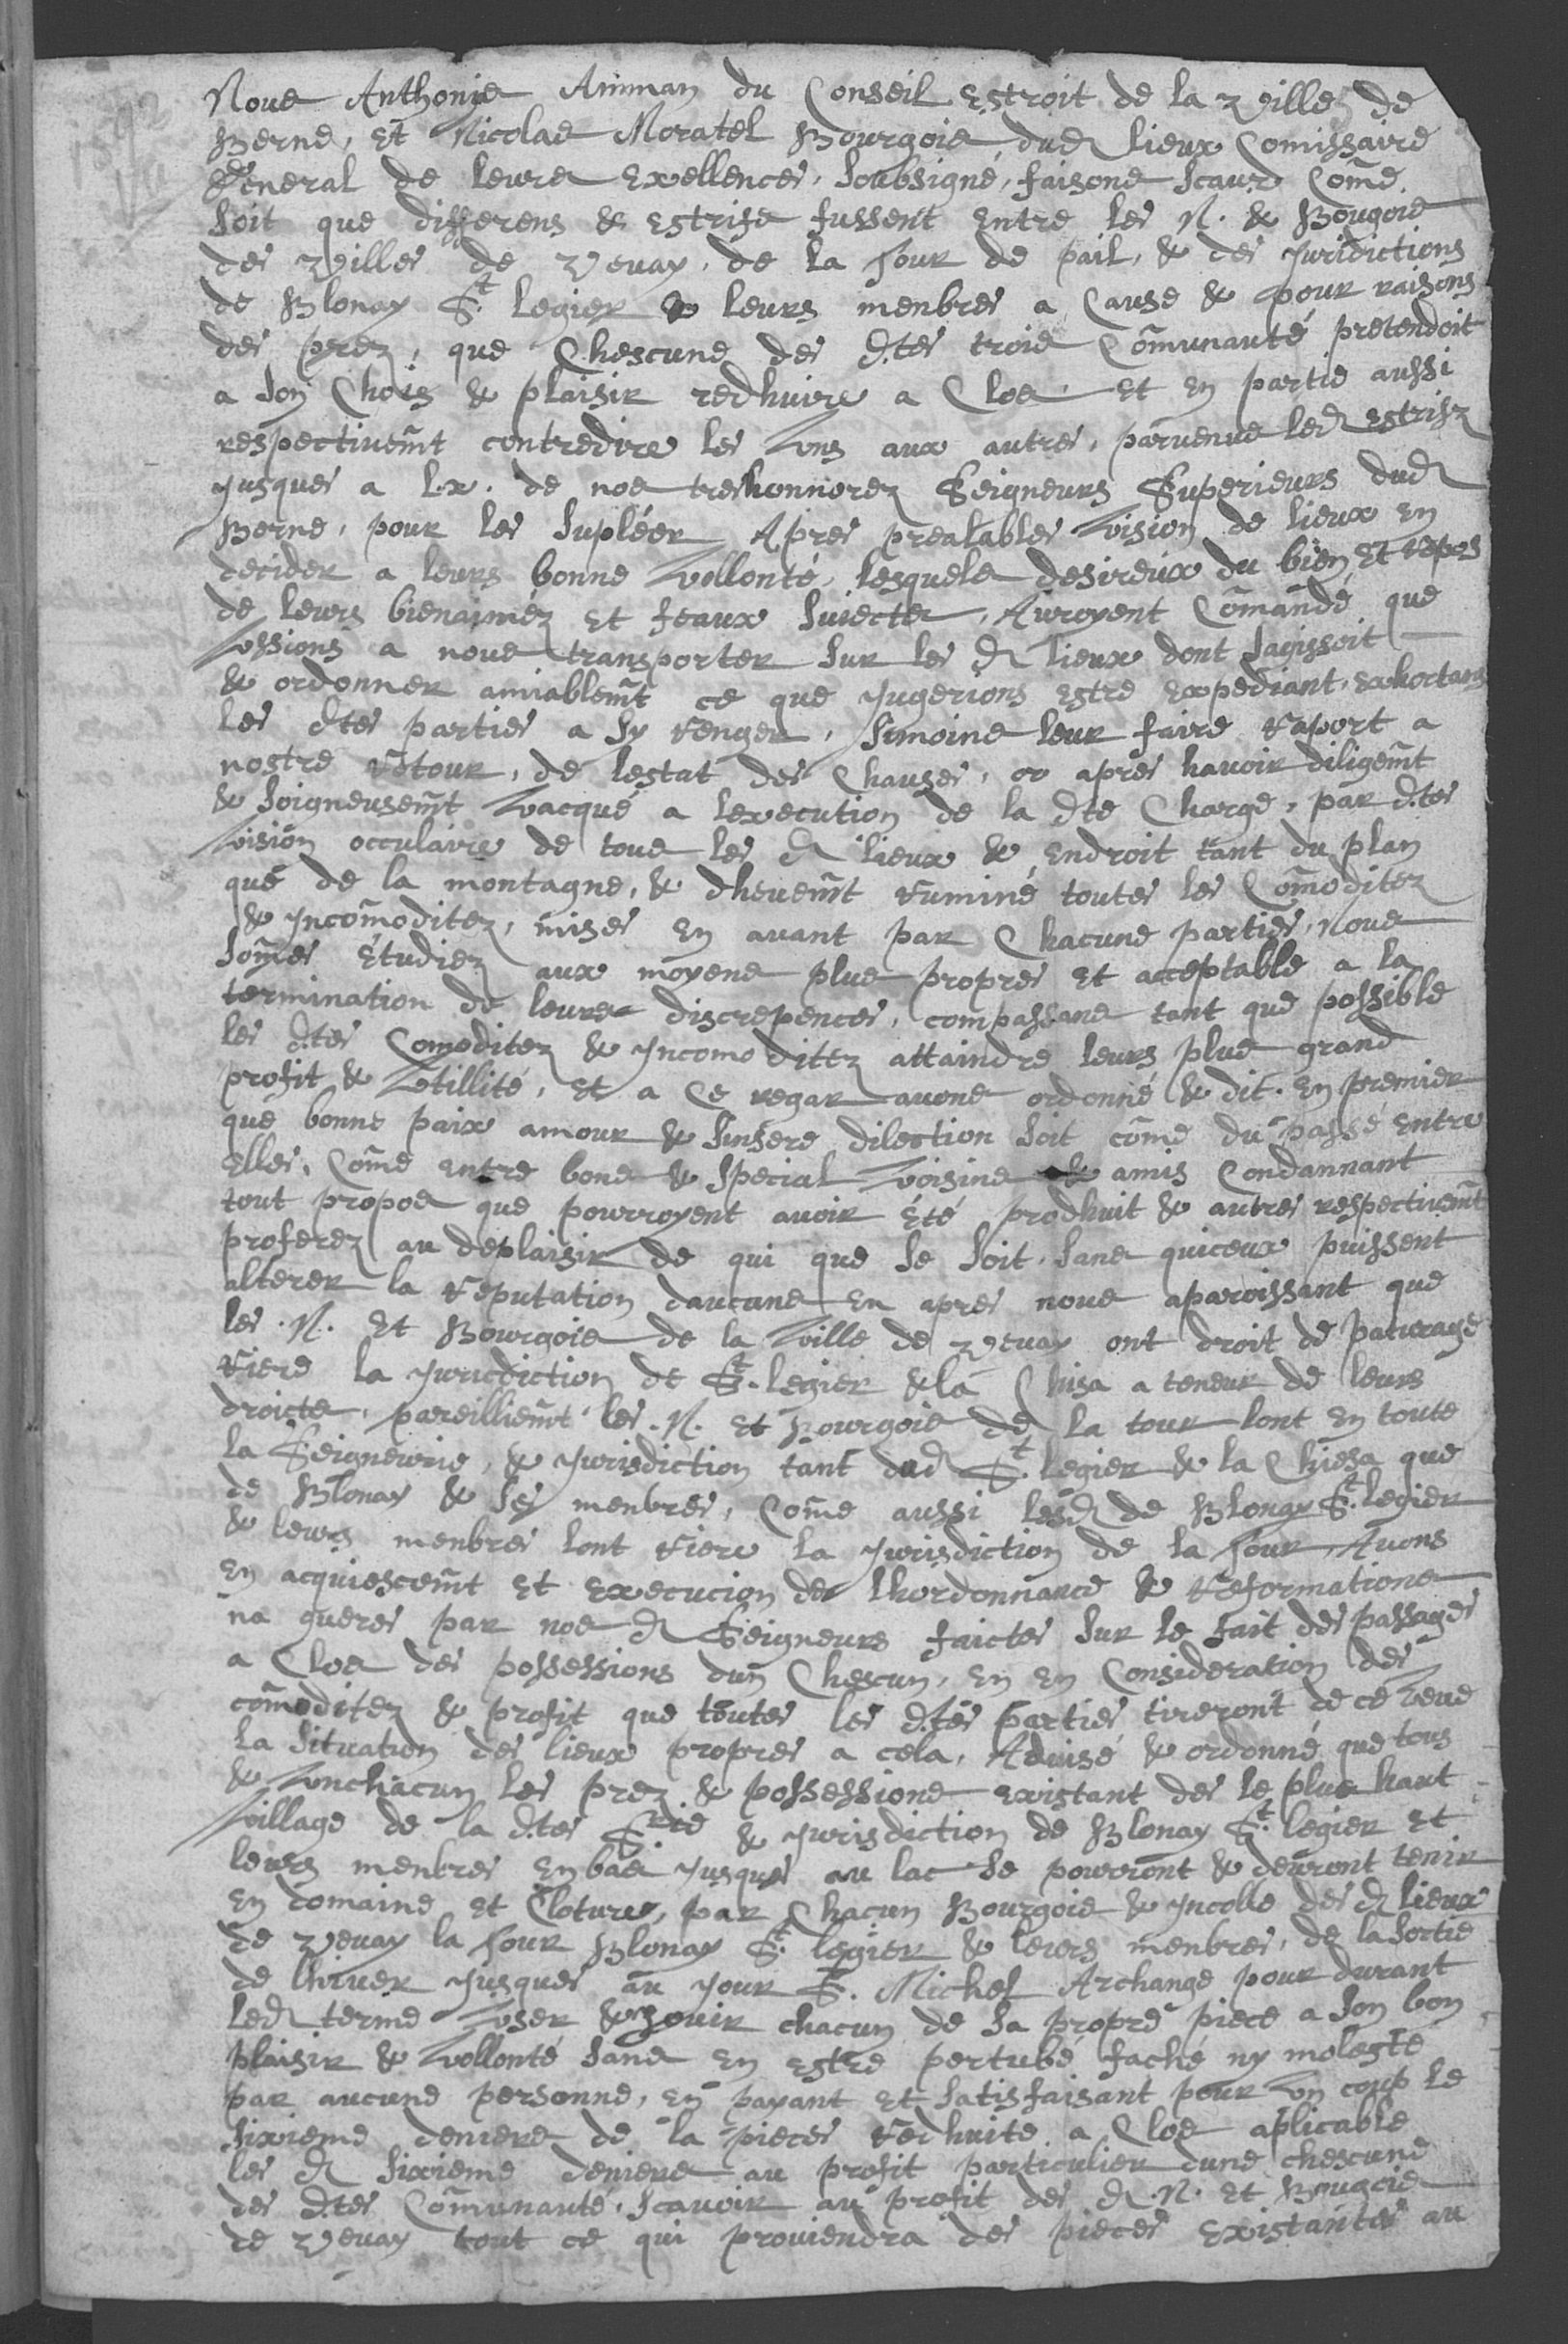 Nous Anthonie Amman du Conseil Estroit de la Ville de
Berne, Et Nicolas Moratel Bourgois dud lieux Comissaire
General de leurs Exellences, soubsigné, faisons scavr Come
soit que differens & Estrifs fussent Entre les N. & Bougois
des Villes de Vevay, de la Tour de pail, & des Juridictions
de Blonay St. legier & leurs menbres a Cause & pour raisons
des prez, que Chescune des d.tes trois Comunauté pretendoit
a son Chois & plaisir redhuire a Clos Et En partie aussi
respectivemt contredire les Vns aux autres, parvenus led Estrifz
Jusques a Lx. de nos treshonnorez Seigneurs Superieurs dud
Berne, pour les supléer Apres prealables Vision de lieux En
decider a leurs bonne Vollonté, lesquels desireux du bien Et repos
de leurs bienaiméz Et feaux suiects, Auroyent Comandé que
Vssions a nous transporter sur les d lieux dont sagissoit
& ordonner amiablemt ce que Jugerions Estre Expediant, Exhortans
les d.tes parties a sy renger, sinoins leur faire raport a
nostre retour, de lestat des Chauses, or apres havoir diligemt
& soigneusemt Vacqué a lexecution de la dte Charge, par d.tes
Vision occulaire de tous les d lieux & Endroit tant du plan
que de la montagne, & dhevemt ruminé toutes les Comoditez
& Incomoditez, mises En avant par Chacune parties, Nous
somes Etudiez aux moyens plus propres Et acceptable a la
termination de leurs discrepences, compassans tant que possible
les d.tes Comoditez & Incomoditez attaindre leurs plus grand
profit & Vtillité, Et a Ce regar avons ordonné & dit. En premier
que bonne paix amour & sinsere dilection soit come du passé Entre
Elles, Come Entre bons & special Voisins & amis Condannant
tout propos que pourroyent avoir Eté prodhuit & autres respectivemt
proferez au deplaisir de qui que se soit, sans quiceux puissent
alterer la reputation daucune En apres nous aparoissant que
les .N. Et Bourgois de la Ville de Vevay ont droit de paturage
riere la Jurisdiction de St. legier & la Chisa a teneur de leurs
droicts, pareilliemt les .N. Et Bourgois de la tour lont En toute
la Seigneurie, & Jurisdiction tant dud St. legier & la Chiesa que
de Blonay & ses menbres, Come aussi lesd de Blonay St. legier
& leurs menbres lont riere la Jurisdiction de la Tour, Avons
En acquiescemt Et Execucion de lhordonnance & reformations
na gueres par nos d Seigneurs faictes sur le fait des passages
a Clos des possessions dun Chescun, En En Consideration des
comoditez & profit que toutes les d.tes parties tireront de ce Veue
la situation des lieux propres a cela, Advisé & ordonné que tous
& Vnchacun les prez & possessions Existant des le plus haut
Village de la d.tes Srie & Jurisdiction de Blonay St. legier Et
leurs menbres Enbas Jusques au lac se pourront & devront tenir
En domaine Et Cloture, par Chacun Bourgois & Incolle des d lieux
de Vevay la Tour Blonay St. legier & leurs menbres, de la sortie
de lhiver Jusques au Jour S. Michel Archange pour durant
led terme Vser & Jouir chacun de sa propre piece a son bon
plaisir & Vollonté sans En Estre pertubé faché ny molesté
par aucune personne, En payant Et satisfaisant pour Vn coup le
sixieme deniers de la pieces redhuite a Clos aplicable
les d sixieme deniers au profit particulier dune chescune
des d.tes Comunauté, scavoir au profit des d .N. Et Bougois
de Vevay tout ce qui proviendra des pieces Existantes au